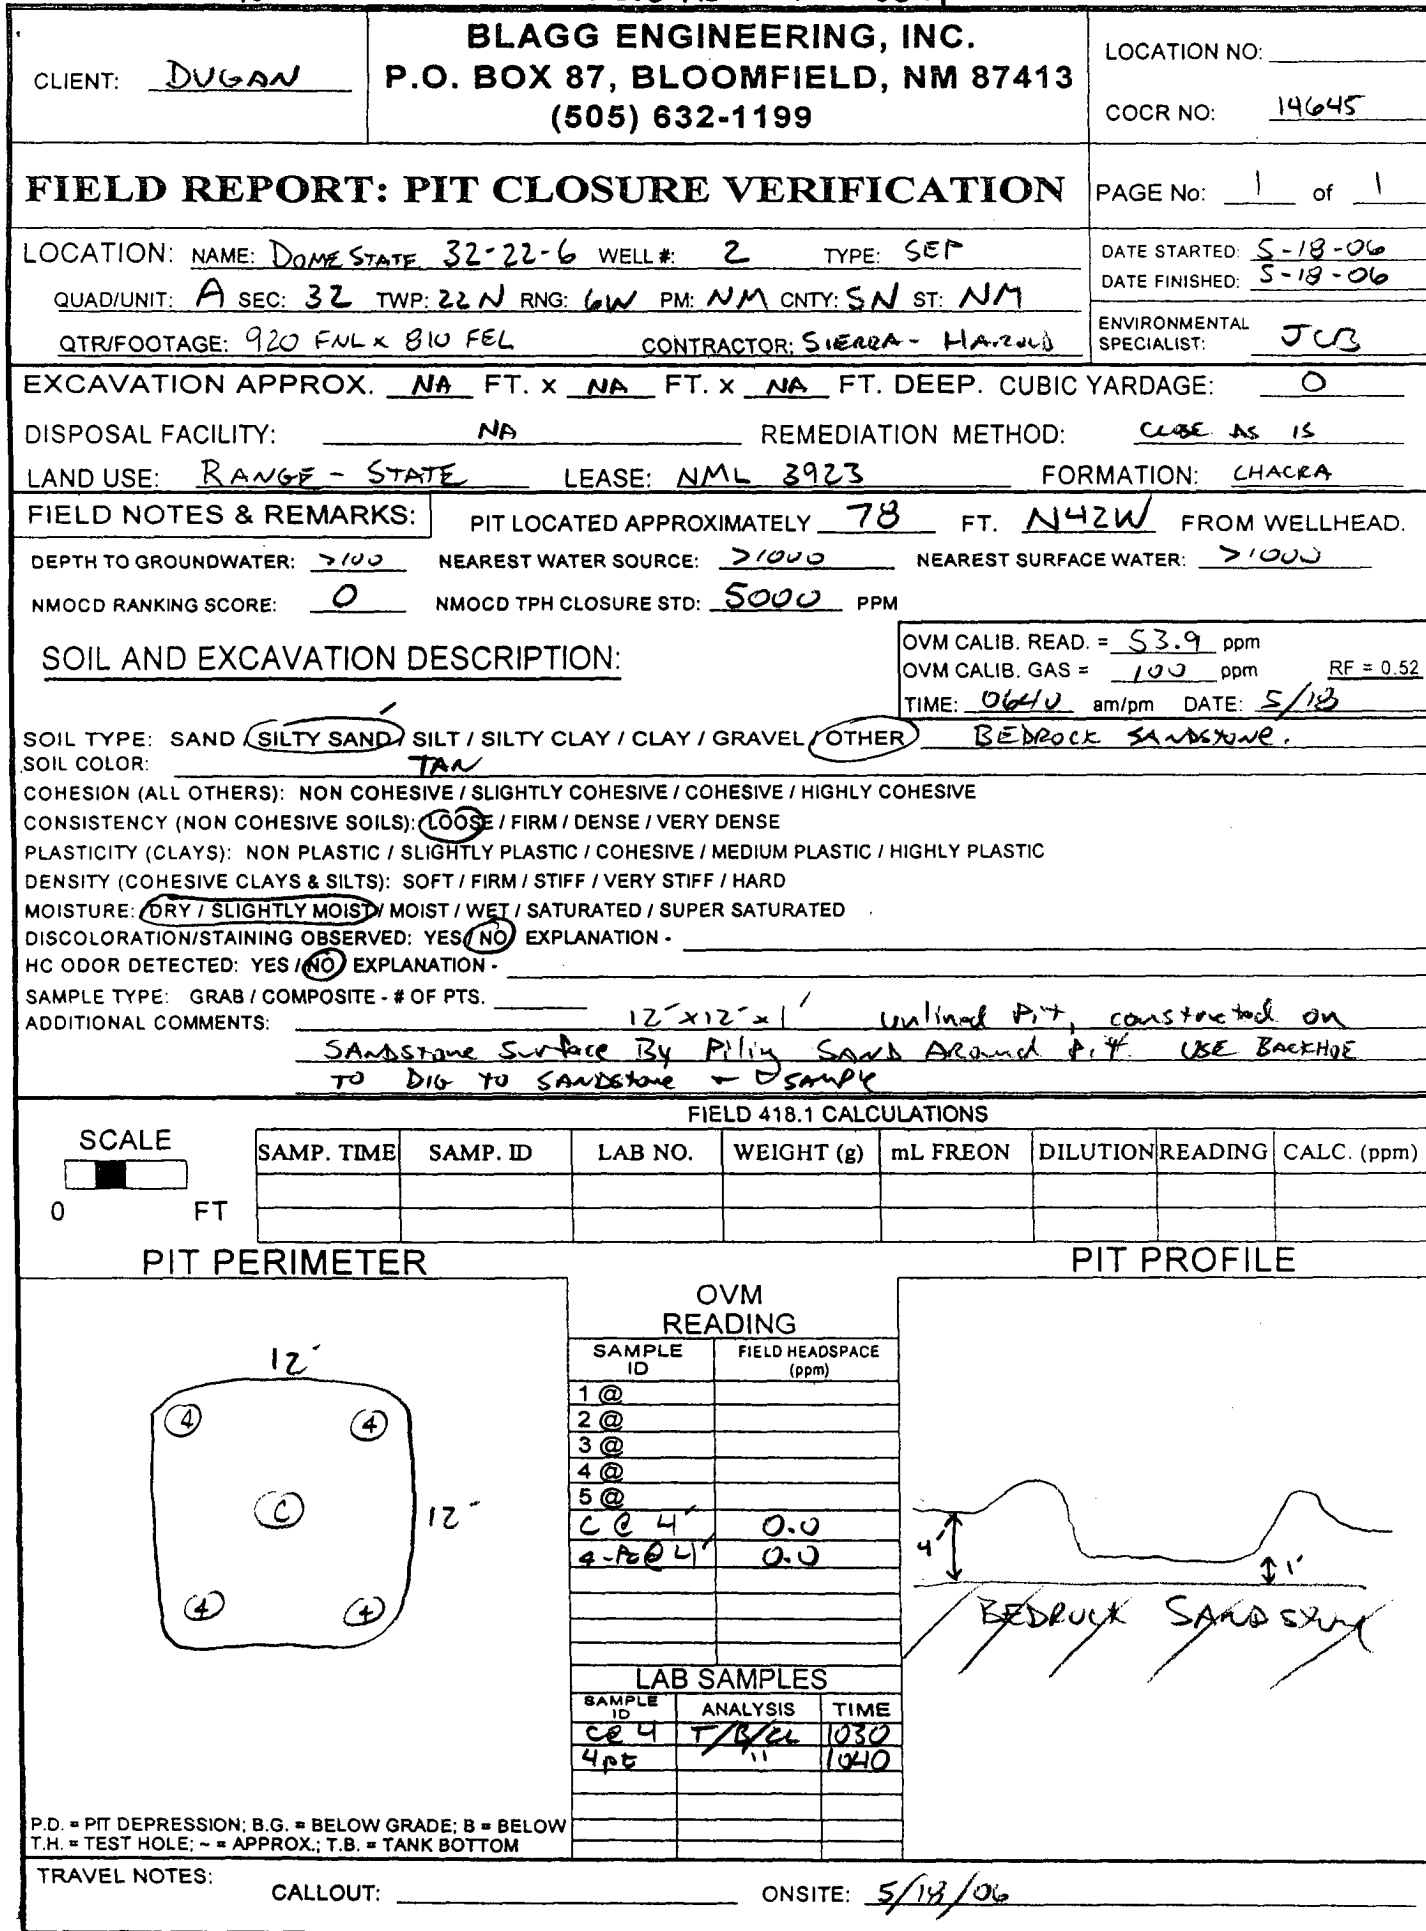 BLAGG ENGINEERING, INC.
P.O. BOX 87, BLOOMFIELD, NM 87413
(505) 632-1199
CLIENT: DUGAN
LOCATION NO:
COCR NO: 14645
FIELD REPORT: PIT CLOSURE VERIFICATION
PAGE No: 1 of 1
LOCATION: NAME: DOME STATE 32-22-6 WELL #: 2 TYPE: SEP
QUAD/UNIT: A SEC: 32 TWP: 22N RNG: 6W PM: NM CNTY: SN ST: NM
QTR/FOOTAGE: 920 FNL x 810 FEL CONTRACTOR: SIERRA - HAROLD
DATE STARTED: 5-18-06
DATE FINISHED: 5-18-06
ENVIRONMENTAL
SPECIALIST: JCB
EXCAVATION APPROX. NA FT. x NA FT. x NA FT. DEEP. CUBIC YARDAGE: 0
DISPOSAL FACILITY: NA REMEDIATION METHOD: CLOSE AS IS
LAND USE: RANGE - STATE LEASE: NML 3923 FORMATION: CHACRA
FIELD NOTES & REMARKS: PIT LOCATED APPROXIMATELY 78 FT. N42W FROM WELLHEAD.
DEPTH TO GROUNDWATER: >100 NEAREST WATER SOURCE: >1000 NEAREST SURFACE WATER: >1000
NMOCD RANKING SCORE: 0 NMOCD TPH CLOSURE STD: 5000 PPM
SOIL AND EXCAVATION DESCRIPTION:
OVM CALIB. READ. = 53.9 ppm
OVM CALIB. GAS = 100 ppm RF = 0.52
TIME: 0640 am/pm DATE: 5/18
SOIL TYPE: SAND / SILTY SAND / SILT / SILTY CLAY / CLAY / GRAVEL / OTHER BEDROCK SANDSTONE.
SOIL COLOR: TAN
COHESION (ALL OTHERS): NON COHESIVE / SLIGHTLY COHESIVE / COHESIVE / HIGHLY COHESIVE
CONSISTENCY (NON COHESIVE SOILS): LOOSE / FIRM / DENSE / VERY DENSE
PLASTICITY (CLAYS): NON PLASTIC / SLIGHTLY PLASTIC / COHESIVE / MEDIUM PLASTIC / HIGHLY PLASTIC
DENSITY (COHESIVE CLAYS & SILTS): SOFT / FIRM / STIFF / VERY STIFF / HARD
MOISTURE: DRY / SLIGHTLY MOIST / MOIST / WET / SATURATED / SUPER SATURATED
DISCOLORATION/STAINING OBSERVED: YES / NO EXPLANATION -
HC ODOR DETECTED: YES / NO EXPLANATION -
SAMPLE TYPE: GRAB / COMPOSITE - # OF PTS.
ADDITIONAL COMMENTS: 12' x 12' x 1' unlined Pit, constructed on
SANDSTONE Surface By Piling SAND Around Pit. USE BACKHOE
TO DIG TO SANDSTONE SAMPLE
FIELD 418.1 CALCULATIONS
SCALE
0 FT
SAMP. TIME SAMP. ID LAB NO. WEIGHT (g) mL FREON DILUTION READING CALC. (ppm)
PIT PERIMETER
12'
4 4
C 12'
4 4
OVM
READING
SAMPLE ID FIELD HEADSPACE (ppm)
1 @
2 @
3 @
4 @
5 @
C @ 4' 0.0
4-Pt @ 4' 0.0
LAB SAMPLES
SAMPLE ID ANALYSIS TIME
C@4 T/B/CL 1030
4pt " 1040
PIT PROFILE
4' 1'
BEDROCK SANDSTONE
P.D. = PIT DEPRESSION; B.G. = BELOW GRADE; B = BELOW
T.H. = TEST HOLE; ~ = APPROX.; T.B. = TANK BOTTOM
TRAVEL NOTES: CALLOUT: ONSITE: 5/18/06